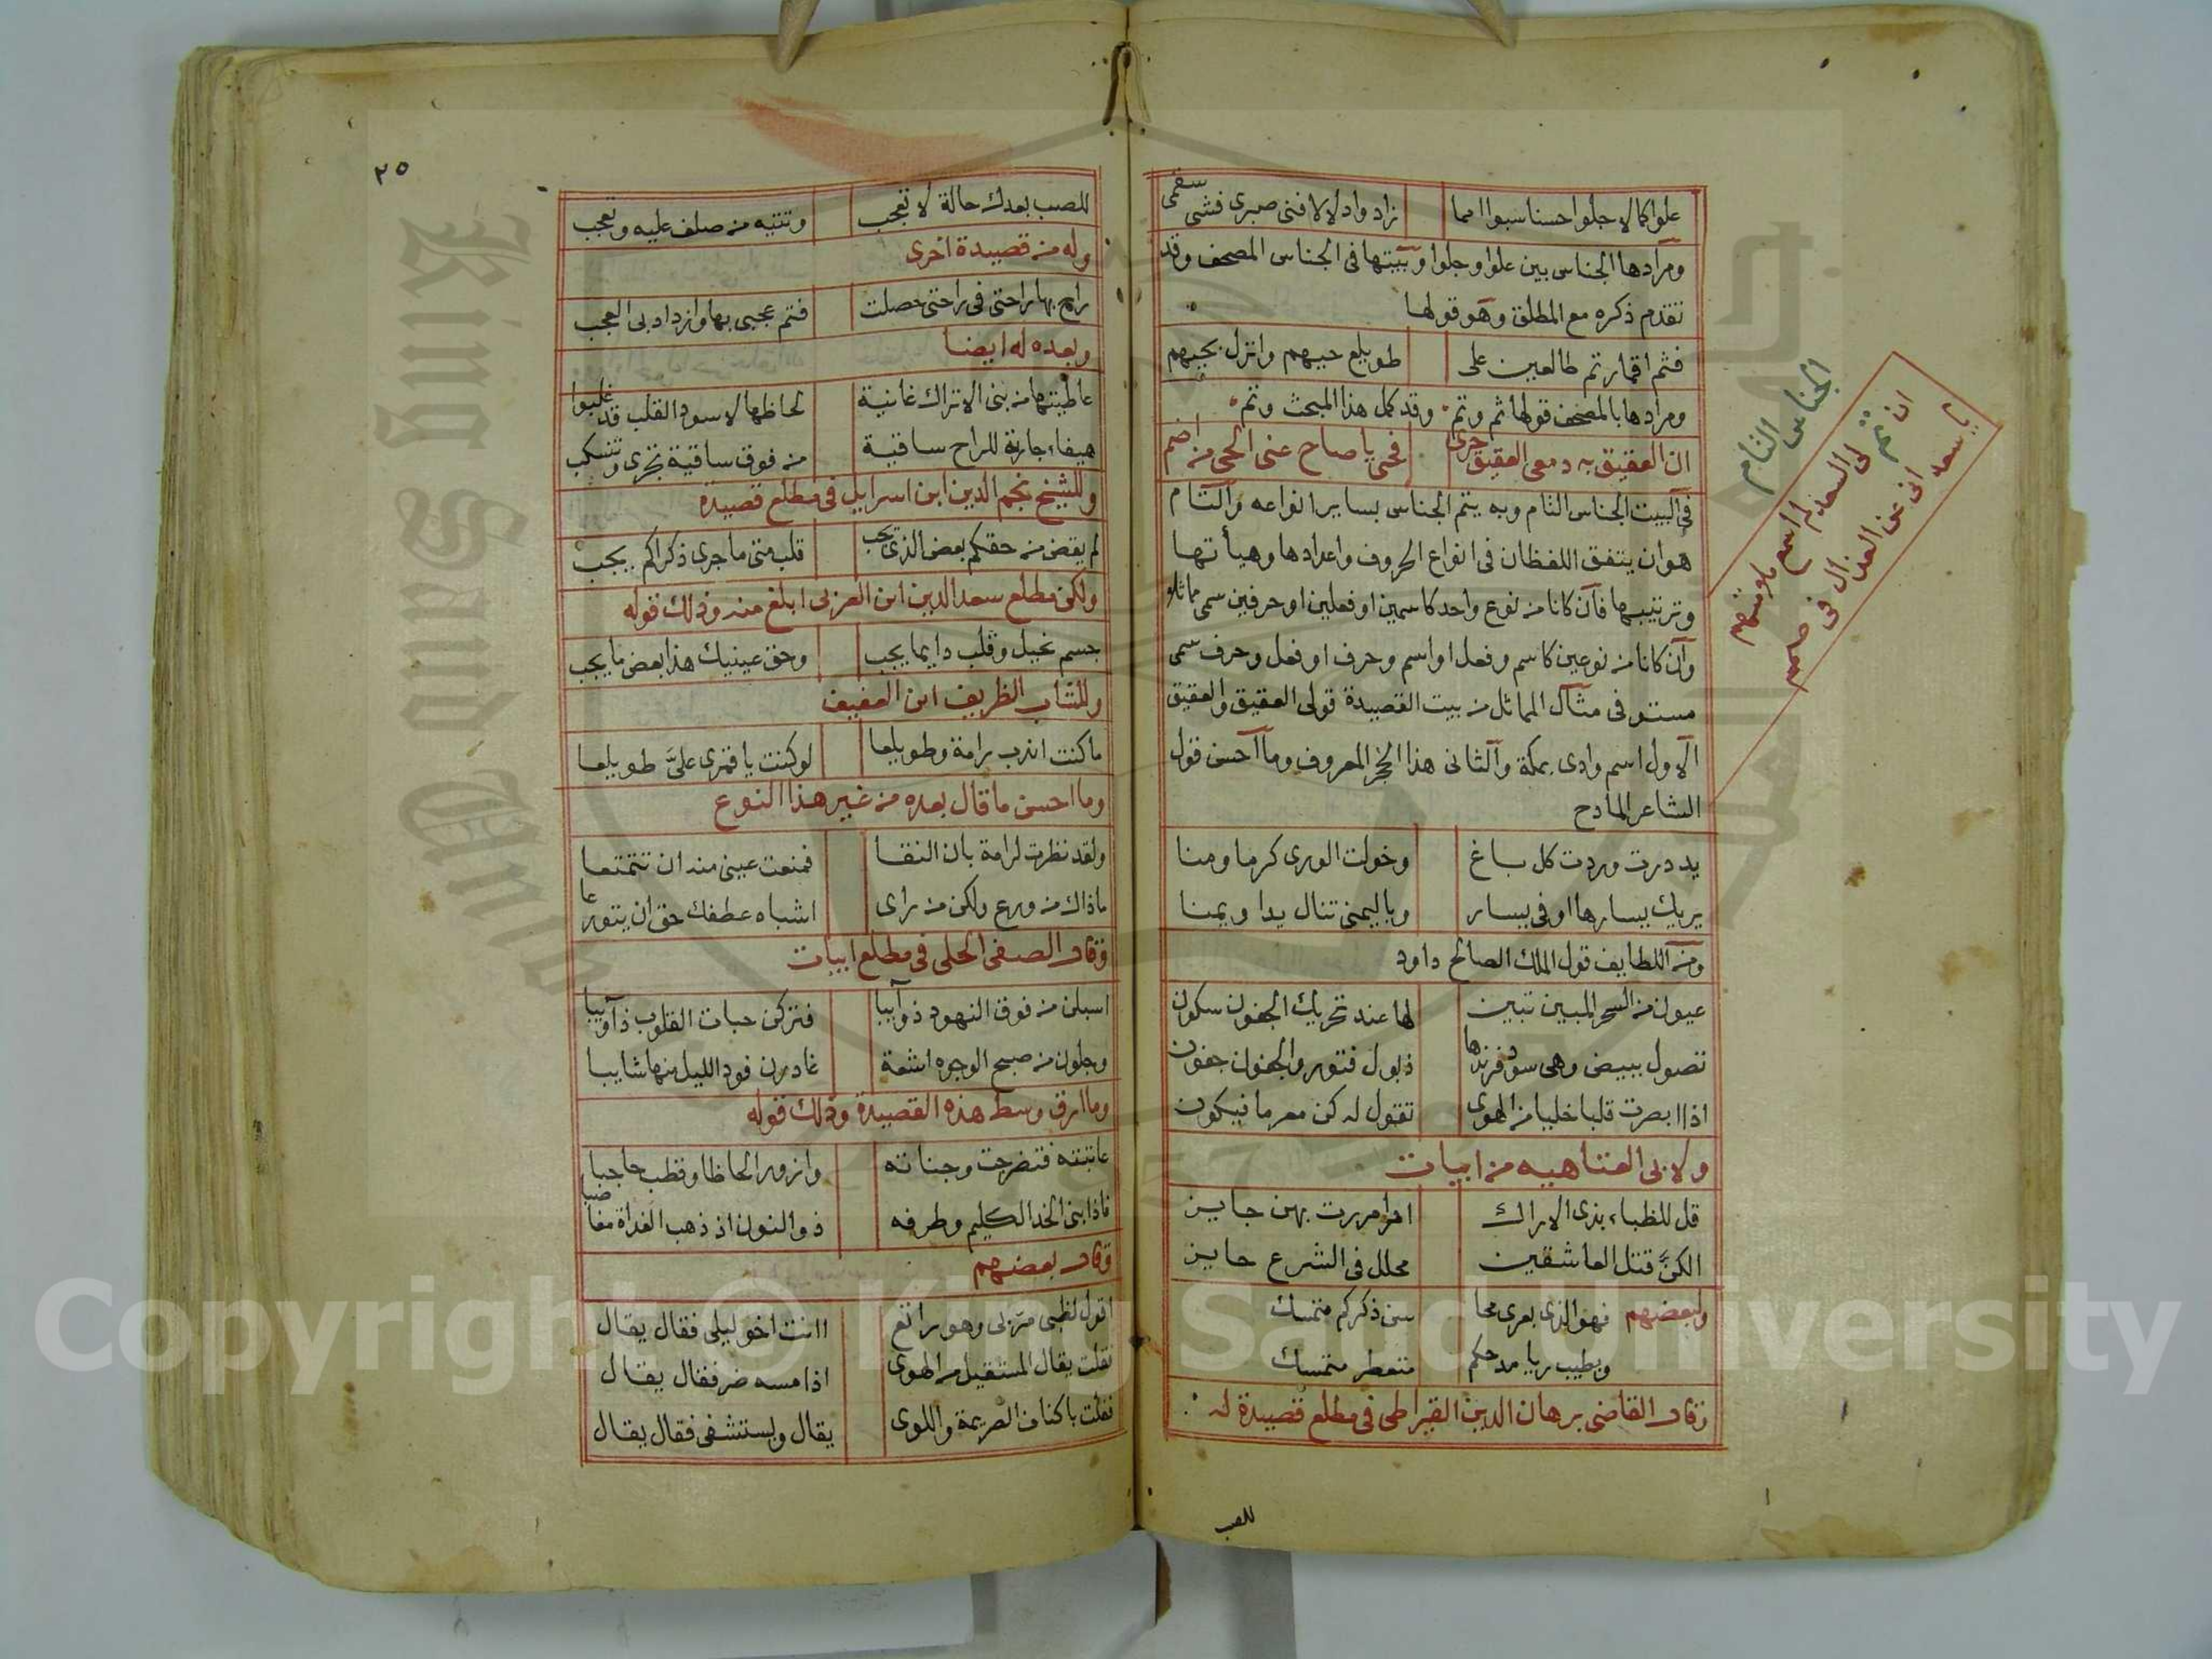 علوا كمالا جلوا حسنا سبوا امما زادوا دلالا فنى صبرى فشى سقمى
ومرادها الجناس بين علوا وجلوا وبيتها فى الجناس المصحف وقد
تقدم ذكره مع المطلق وهو قولها
فثم اقمار تم طالعين على طويلع حيهم وانزل بحيهم
ومرادها بالمصحف قولها ثم وتم وقد كمل هذا المبحث وتم
ان العقيق به دمعى العقيق جرى فحى يا صاح عنى الحى من اضم
فى البيت الجناس التام وبه يتم الجناس بساير انواعه والتام
هو ان يتفق اللفظان فى انواع الحروف واعدادها وهيأتها
وترتيبها فان كانا من نوع واحد كاسمين او فعلين او حرفين سمى مماثلا
وان كانا من نوعين كاسم وفعل او اسم وحرف او فعل وحرف سمى
مستوفى مثال المماثل من بيت القصيدة قولى العقيق والعقيق
الاول اسم وادى بمكة والثانى هذا الحجر المعروف وما احسن قول
الشاعر المادح
يد درت وردت كل باغ وخولت الورى كرما ومنا
يريك يسارها اوفى يسار وباليمنى تنال يدا ويمنا
ومن اللطايف قول الملك الصالح داود
عيون من السحر المبين تبين لها عند تحريك الجفون سكون
تصول ببيض وهى سود فرندها ذبول فتور والجفون جفون
اذا ابصرت قلبا خليا من الهوى تقول له كن مغرما فيكون
ولابى العتاهيه من ابيات
قل للظباء بذى الاراك اذا مررت بهن جايز
الكن قتل العاشقين محلل فى الشرع جايز
ولبعضهم فهو الذى بعرى محا سن ذكركم متمسك
وبطيب ريا مدحكم متعطر متمسك
وقال القاضى برهان الدين القيراطى فى مطلع قصيدة له
للصب
الجناس التام
يا سعد ان تم لى السعد لم اسمع ملامتهم
انى عن العذال فى صمم
٢٥
للصب بعدك حالة لا تعجب وتتيه من صلف عليه وتعجب
وله من قصيدة اخرى
راح بها راحتى فى راحتى حصلت فتم عجبى بها وازداد بى العجب
وبعده له ايضا
عاطيتها من بنى الاتراك غانية لحاظها لاسود القلب قد غلبوا
هيفاء جارية للراح ساقية من فوق ساقية تجرى وتنسكب
وللشيخ نجم الدين ابن اسرايل فى مطلع قصيدة
لم يقض من حقكم بعض الذى يجب قلب متى ما جرى ذكراكم يجب
ولكن مطلع سعد الدين ابن العربى ابلغ منه وذلك قوله
جسم نحيل وقلب دايما يجب وحق عينيك هذا بعض ما يجب
وللشاب الظريف ابن العفيف
ما كنت اندب رامة وطويلعا لو كنت يا قمرى على طويلعا
وما احسن ما قال بعده من غير هذا النوع
ولقد نظرت لرامة بان النقا فمنعت عينى منه ان تتمتعا
ما ذاك من ورع ولكن من راى اشباه عطفك حق ان يتورعا
وقال الصفى الحلى فى مطلع ابيات
اسبلن من فوق النهود ذوآيبا فتركن حبات القلوب ذوآيبا
وجلون من صبح الوجوه اشعة غادرن فود الليل منها شايبا
وما ارق وسط هذه القصيدة وذلك قوله
عاتبته فتضرجت وجناته وازور الحاظا وقطب حاجبا
فاذابنى الخد الكليم وطرفه ذو النون اذ ذهب الغداة مغاضبا
وقال بعضهم
اقول لظبى مر بى وهو راتع اانت اخو ليلى فقال يقال
فقلت يقال المستقيل من الهوى اذا مسه ضر فقال يقال
فقلت باكناف الصريمة واللوى يقال ويستشفى فقال يقال
Copyright © King Saud University
King Saud University